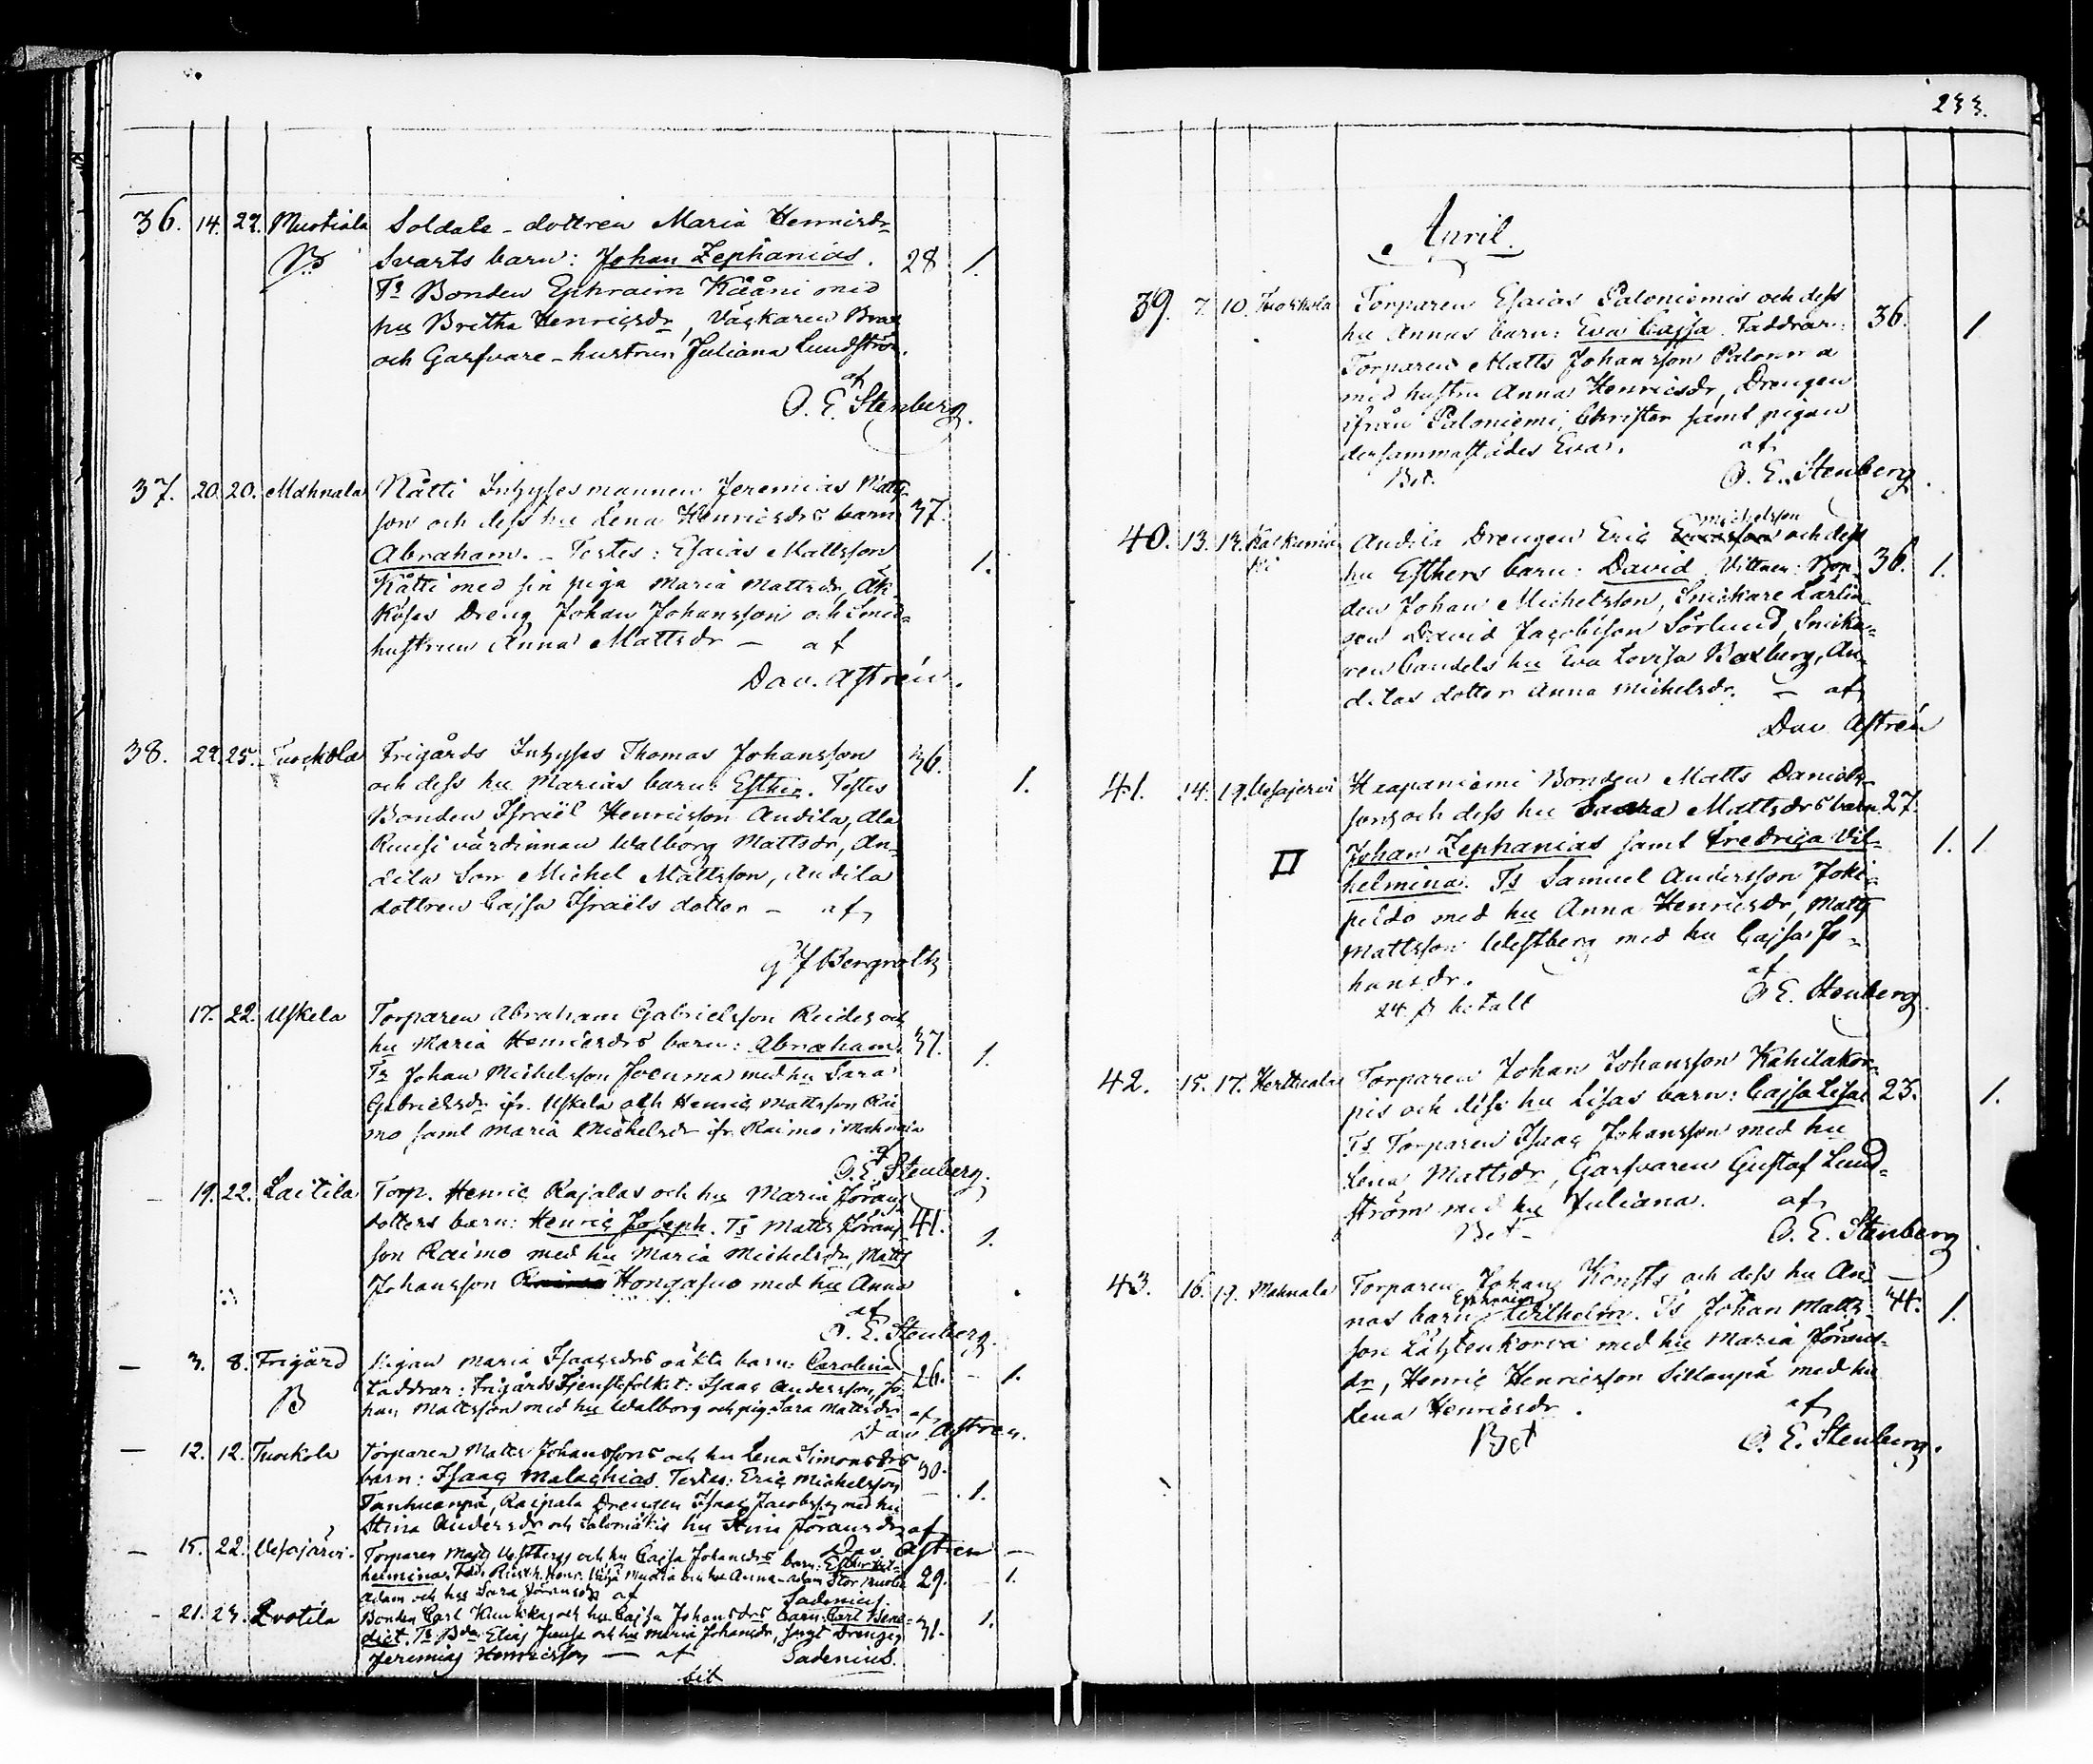 36. 14. 22. Mustiala Soldate-dottren Maria Henricsdr
B Svarts barn: Johan Zephanias. 28 1.
Ts Bonden Ephraim Kääni med
hu Britha Henricsdr, Väçkaren Brax
och Garfvare-hustrun Juliana Lundström.
af
O. E. Stenberg.
37. 20. 20. Mahnala Rätti Inhysesmannen Jeremias Matts
son och dess hu Lena Henricsdrs barn 37.
Abraham. - Testes: Esaias Mattsson 1.
Rätti med sin piga Maria Mattsdr, Äk
köses Dreng Johan Johansson och Smed-
hustrun Anna Mattsdr - af
Dav. Astrén.
38. 22. 25. Tuockola Frigårds Inhyses Thomas Johansson 36.
och dess hu Marias barn: Esther. Testes 1.
Bonden Israël Henricsson Andila, Ala
värdinnan Walborg Mattsdr, An-
dila Son Michel Mattsson, Andila
dottren Cajsa Israëls dotter - af
Bergroth
17. 22. Uskela Torparen Abraham Gabrielsson och
hu Maria Henricsdrs barn: Abraham. 37. 1.
Ts Johan Michelsson med hu Sara
Gabrielsdr ifr. Uskela och Henric Mattsson Rai
mo samt Maria Michelsdr ifr. Raimo i Mahnala
af
O. E. Stenberg.
19. 22. Laitila Torp. Henric Rajalas och hu Maria Jörans
dotters barn: Henric Joseph. Ts Matts Jörans 41. 1.
son Raimo med hu Maria Michelsdr, Matts
Johansson Hongasuo med hu Anna
af
O. E. Stenberg.
3. 8. Frigård Pigan Maria Isaacsdrs oäkta barn: Carolina 26. - 1.
B Faddrar: Frigårds Tjenstefolket: Isaac Andersson, Jo
han Mattsson med hu Walborg och pig. Sara Mattsdr af
Dav. Astren.
12. 12. Tuockola Torparen Matts Johanssons och hu Lena Simonsdrs
barn: Isaac Malachias. Testes: Eric Michelsson 30.
Tanhuanpä, Drengen Isaac Jacobsson med hu 1.
Stina Andersdr och hu Stina Jöransdr af
Dav. Astren
15. 22. Vesajärvi. Torparen Matts Westbergs och hu Cajsa Johansdrs barn: Esther Vil-
helmina. 29. 1.
Adam och hu Sara Jöransdr af Sadenius.
21. 23. Evotila Bonden Carl och hu Cajsa Johansdrs barn: Carl Bene-
dict. Ts Bdn Elias och hu Maria Johansdr, samt Drengen 31. 1.
Jeremias Henricsson - af Sadenius.
233.
April.
39. 7. 10. Tuockola Torparen Esaias Paloniemis och dess
hu Annas barn: Eva Cajsa. Faddrar: 36. 1
Torparen Matts Johansson
med hustru Anna Henricsdr, Drengen
ifrån Paloniemi, Christer samt pigan
dersammastädes Eva. af
Bet. O. E. Stenberg.
40. 13. 13. Andila Drengen Eric Michelsson och dess
hu Esthers barn: David. Vittnen: Bon- 36. 1.
den Johan Michelsson, Snickare Lärlin-
gen David Jacobsson Sörlund, Snicka-
ren hu Eva Lovisa Boxberg, An-
dilas dotter Anna Michelsdr. - af
Dav. Astrén
41. 14. 19. Vesajervi Haapaniemi Bonden Matts Daniels-
sons och dess hu Mattsdrs barn 27.
II Johan Zephanias samt Fredrica Vil- 1. 1
helmina. Ts Samuel Andersson Joki-
med hu Anna Henricsdr, Matts
Mattsson Westberg med hu Cajsa Jo-
hansdr. af
24 betalt O. E. Stenberg.
42. 15. 17. Herttuala Torparen Johan Johansson Kahilakor-
pis och dess hu Lisas barn: Cajsa Lisa 23. 1.
Ts Torparen Isaac Johansson med hu
Lena Mattsdr, Garfvaren Gustaf Lund-
ström med hu Juliana. af
Bet- O. E. Stenberg
43. 16. 19. Mahnala Torparen Johan Konsts och dess hu An-
nas barn Ephraim Wilhelm. Ts Johan Matts- 44. 1.
son med hu Maria Jörans-
dr, Henric Henricsson Sillanpä med hu
Lena Henricsdr. af
Bet O. E. Stenberg.